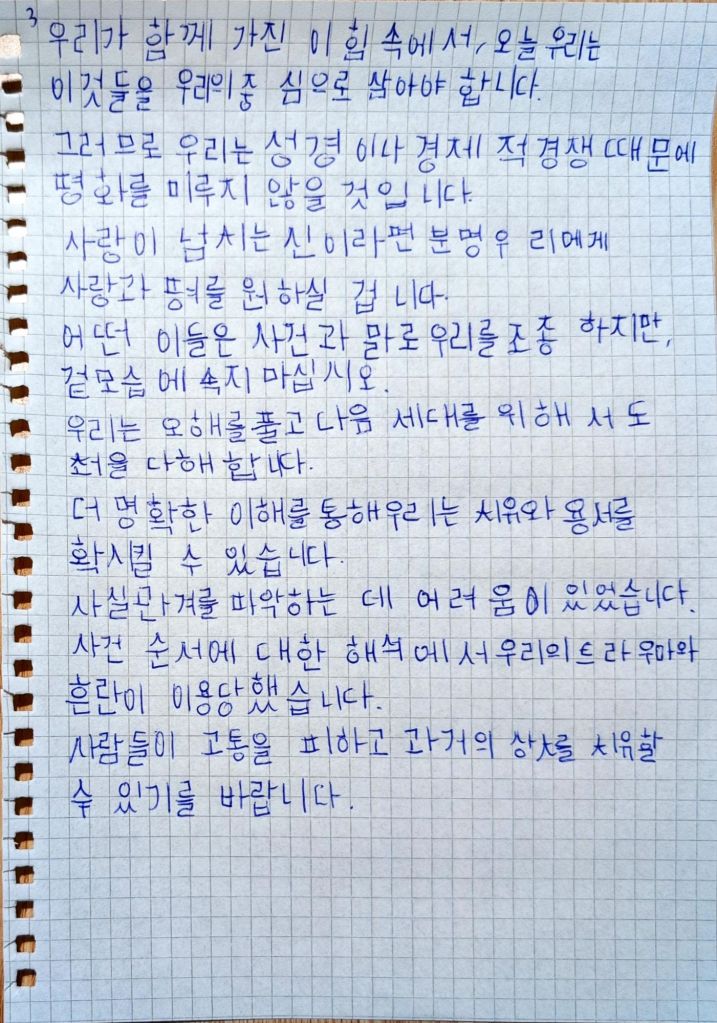 3
우리가 함께 가진 이 힘 속에서, 오늘 우리는
이것들을 우리의 중 심으로 삼아야 합니다.
그러므로 우리는 성경 이나 경제 적 경쟁 때문에
평화를 미루지 않을 것입 니다.
사랑이 넘치는 신이라면 분명 우 리에게
사랑과 를 원하실 겁 니다.
어떤 이들은 사건과 말로 우리를 조종 하지만,
겉모습 에 속지 마십시오.
우리는 오해를 풀고 다음 세대를 위해 서 도
을 다해 합니다.
더 명확한 이해를 통해 우리는 치유와 용서를
확 시킬 수 있습니다.
사실 를 파악하는 데 어려 움이 있었습니다.
사건 순서에 대한 해석 에서 우리의 트라 우마와
혼란이 이용당했습니다.
사람들이 고통을 피하고 과거의 를 치유할
수 있기를 바랍니다.